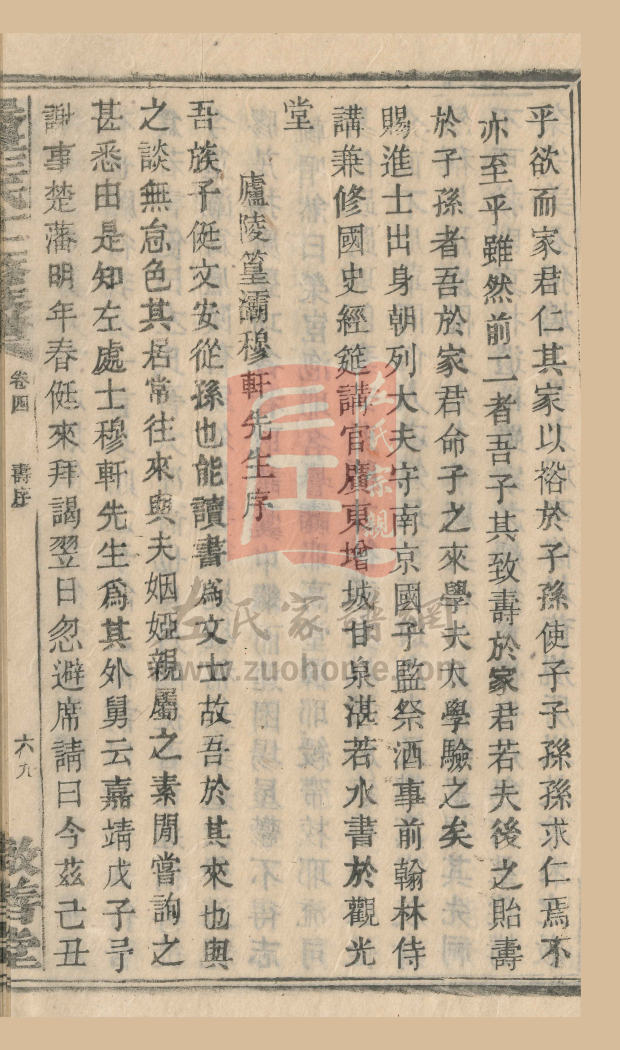 乎欲而家君仁其家以裕於子孫使子子孫孫求仁焉不
亦至乎雖然前二者吾子其致壽於家君若夫後之貽壽
於子孫者吾於家君命子之來學夫大學驗之矣
賜進士出身朝列大夫守南京國子監祭酒事前翰林侍
講兼修國史經筵講官廣東增城甘泉湛若水書於觀光
堂
廬陵篁灞穆軒先生序
吾族子侹文安從孫也能讀書為文士故吾於其來也與
之談無怠色其居常往來與夫姻婭親屬之素閒嘗詢之
甚悉由是知左處士穆軒先生為其外舅云嘉靖戊子予
謝事楚藩明年春侹來拜謁翌日忽避席請曰今茲己丑
卷四 壽序
六九
敦善堂
左氏家譜網
www.zuohome.com